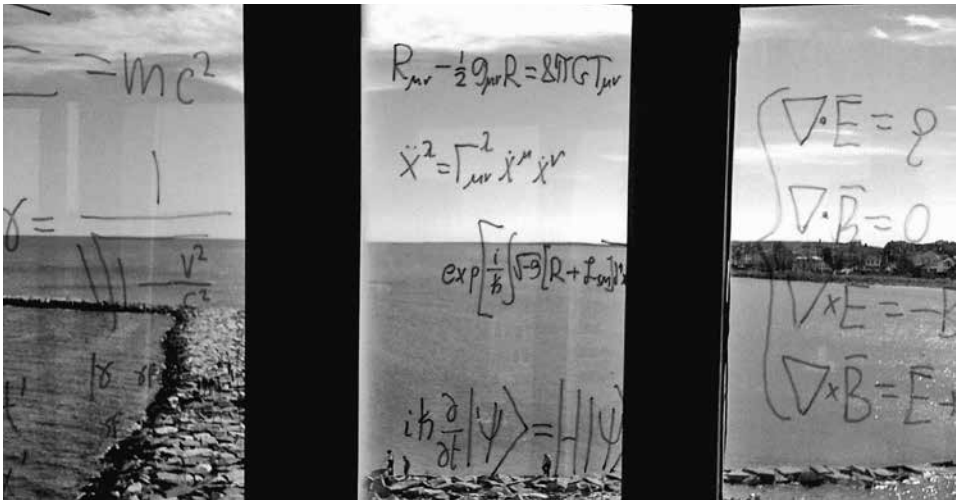 = mc²
γ = 1 / √(1 - v²/c²)
R_μν - ½ g_μν R = 8πG T_μν
ẍ^λ = Γ^λ_μν ẋ^μ ẋ^ν
exp[i/ħ ∫ √-g [R + ℒ_SM] d⁴x
iħ ∂/∂t |ψ⟩ = H|ψ⟩
∇·E̅ = ρ
∇·B̅ = 0
∇×E̅ = -B
∇×B̅ = E̅ +